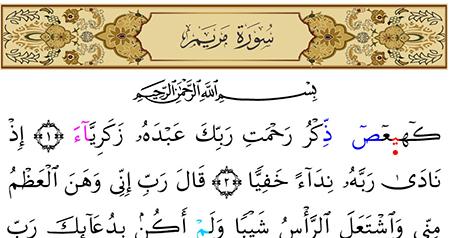 سُورَةُ مَرْيَم
بِسْمِ ٱللَّهِ ٱلرَّحْمَٰنِ ٱلرَّحِيمِ
كٓهيعٓصٓ ذِّكْرُ رَحْمَتِ رَبِّكَ عَبْدَهُۥ زَكَرِيَّآءَ ﴿١﴾ إِذْ
نَادَىٰ رَبَّهُۥ نِدَآءً خَفِيًّا ﴿٢﴾ قَالَ رَبِّ إِنِّى وَهَنَ ٱلْعَظْمُ
مِنِّى وَٱشْتَعَلَ ٱلرَّأْسُ شَيْبًا وَلَمْ أَكُنۢ بِدُعَآئِكَ رَبِّ